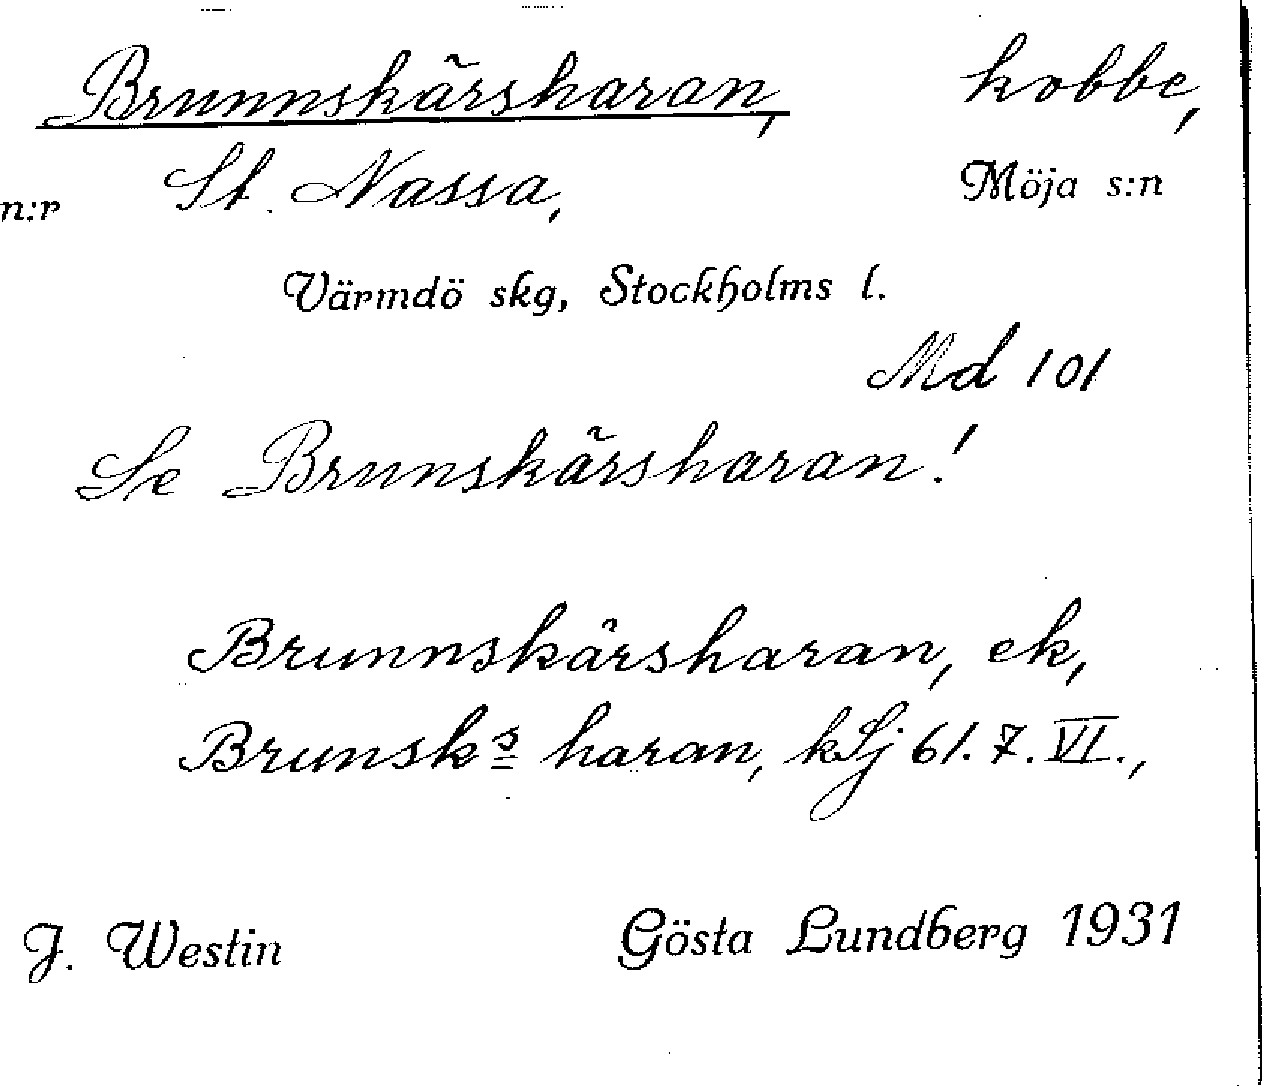 Brunnskärsharan, kobbe,
n:r St. Nassa, Möja s:n
Värmdö skg, Stockholms l.
Md 101
Se Brunskärsharan!
Brunnskärsharan, ek,
Brunsks haran, kSj 61. 7. VI.,
J. Westin Gösta Lundberg 1931